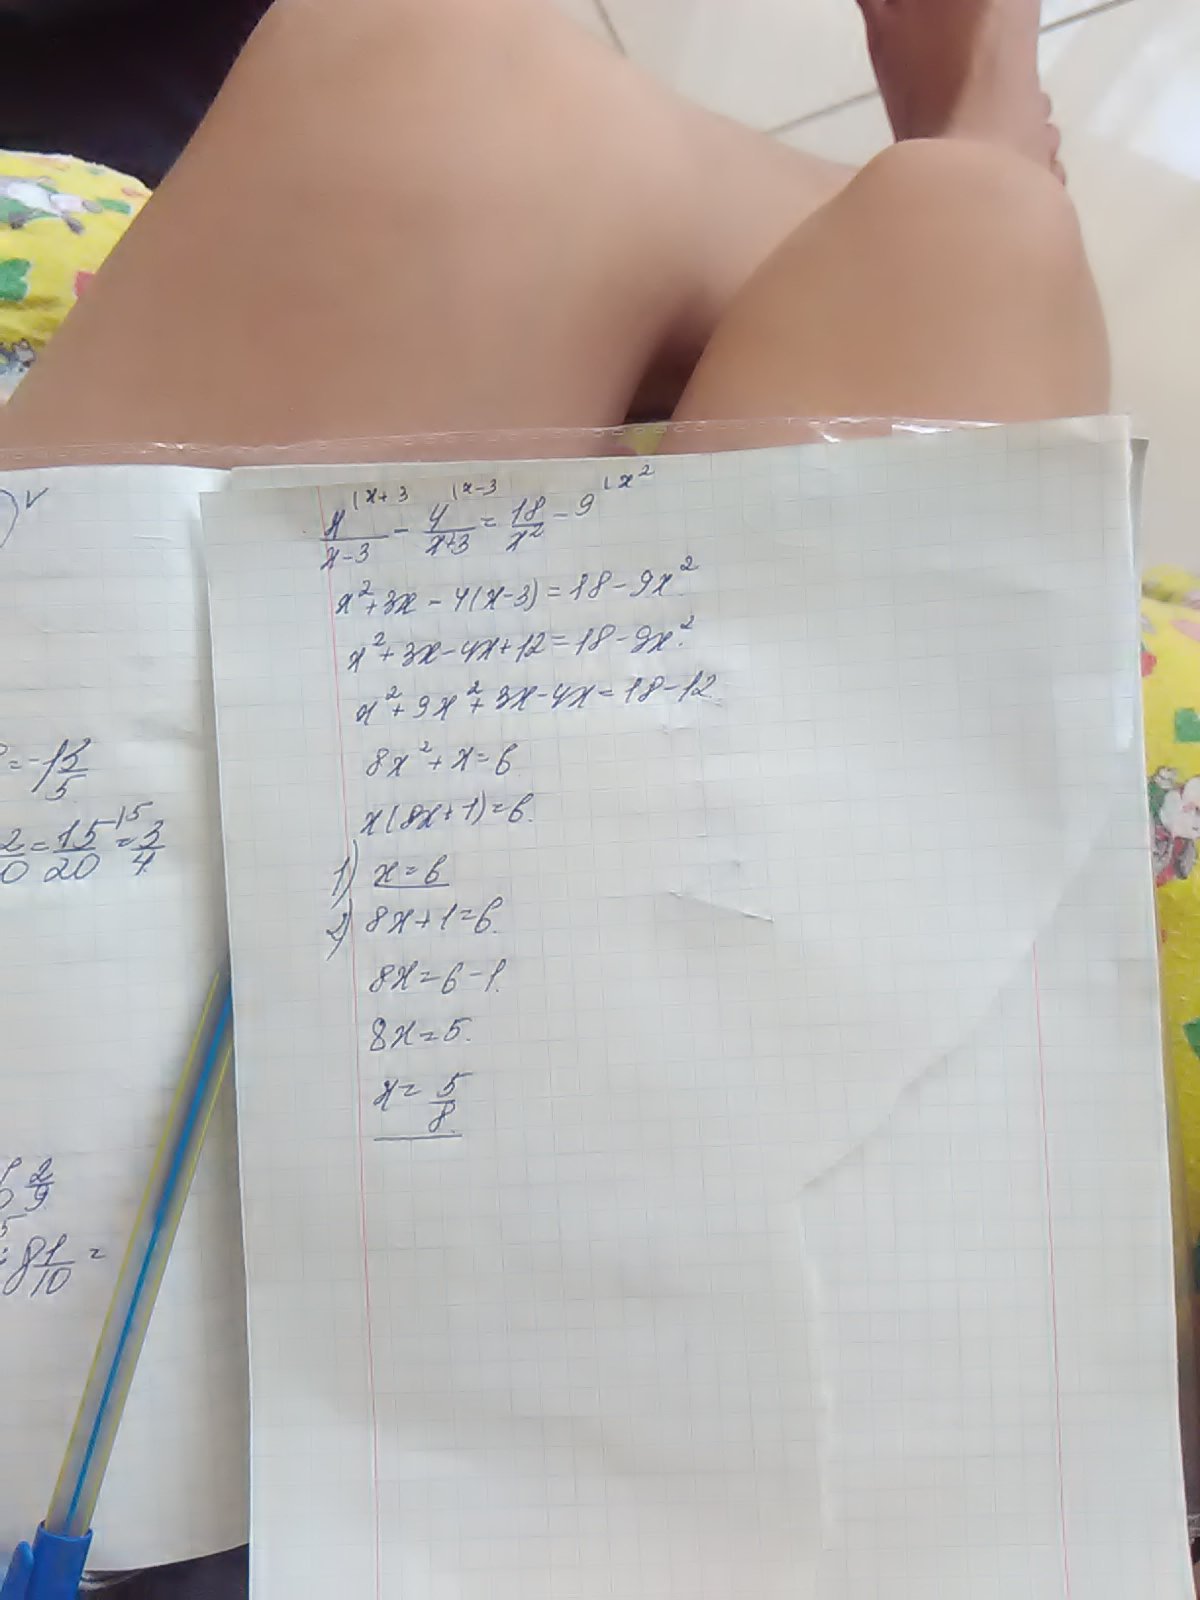 x/(x-3) (x+3 - 4/(x+3) (x-3 = 18/x² - 9 (x²
x²+3x-4(x-3)=18-9x².
x²+3x-4x+12=18-9x².
x²+9x²+3x-4x=18-12.
8x²+x=6.
x(8x+1)=6.
1) x=6
2) 8x+1=6.
8x=6-1.
8x=5.
x=5/8.
=-13/5
=15/20 15=3/4
2/9
:81/10=